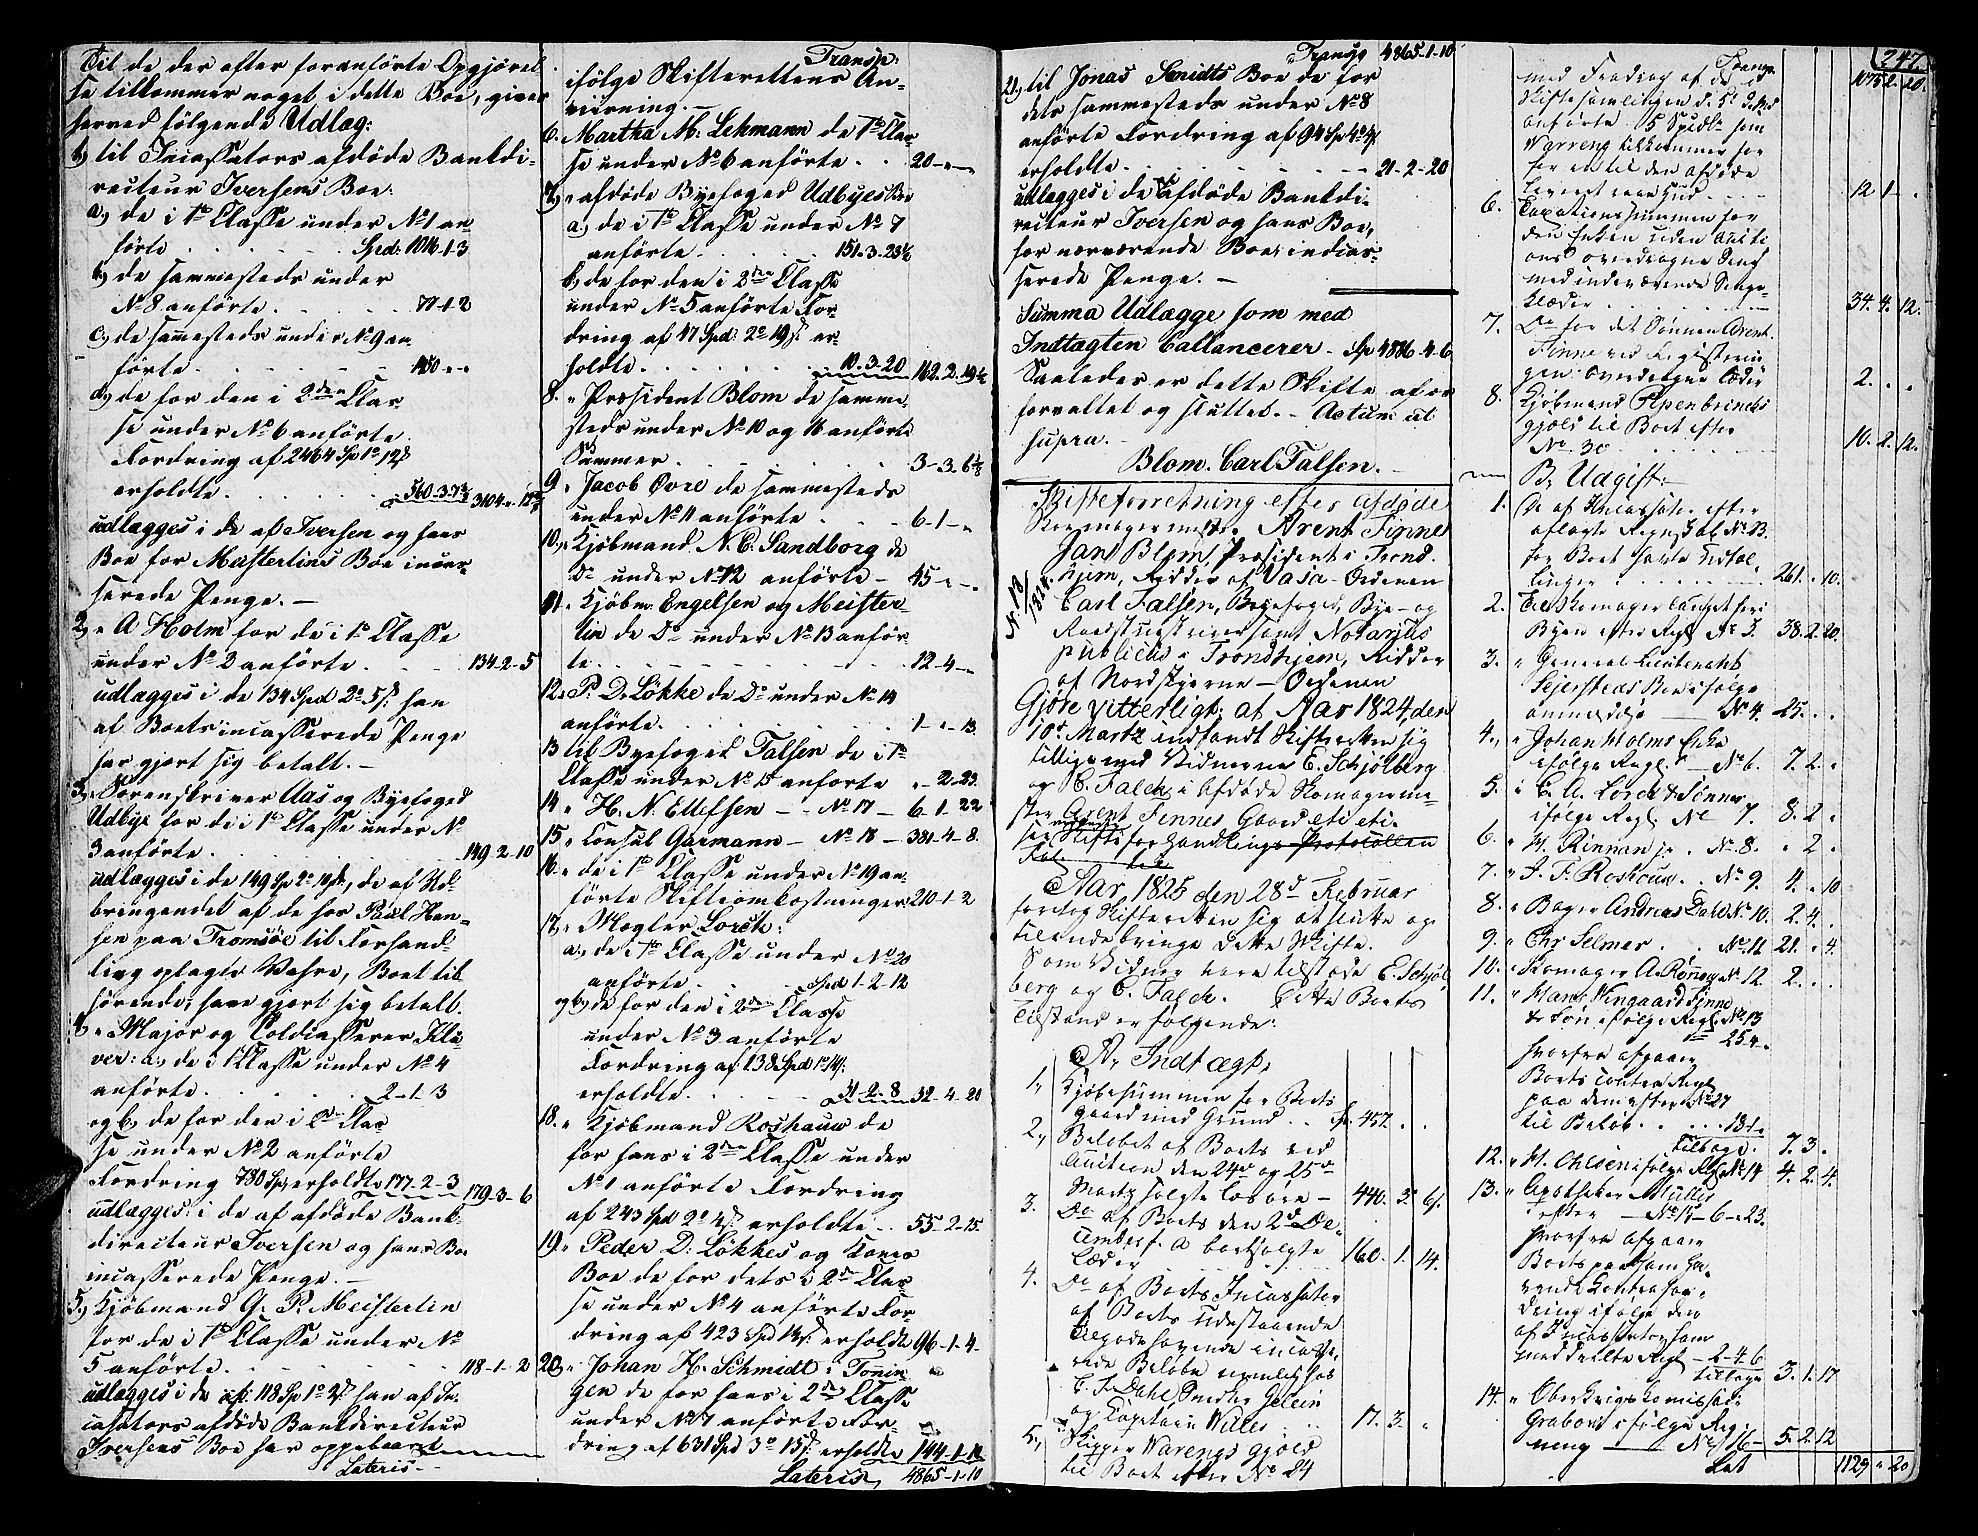 Til de der efter foranførte Opgjørel-
se tilkommer noget i dette Boe, gives
herved følgende Udlæg:
1, til Incassators afdøde Bankdi-
recteur Iversens Boe:
a, de i 1ste Classe under No 1 an-
førte . . . Spd: 1016-1-3
b, de sammesteds under
No 8 anførte . . . 77-1-2
c, de sammesteds under No 9 an-
førte . . . 450 - -
d, de for den i 2den Clas-
se under No 6 anførte
Fordring af 2464 Sp 1o 12 s
erholdte . . .
udlægges i de af Iversen og hans
Boe for Meisterlins Boe incas-
serede Penge. —
2, " A Holm for de i 1ste Classe
under No 2 anførte . . . 134-2-5
udlægges i de 134 Spd 2o 5 s han
at Boets incasserede Penge
har gjort sig betalt. —
3, " Sorenskriver Aas og Byefoged
Udbye for de i 1ste Classe under No
3 anførte . . . 149-2-10
udlægges i de 149 Sp 2o 10 s, de af Ud-
bringendet af de hos Poul Han-
sen paa Tromsøe til Forhand-
ling oplagte Vahre, Boet til-
hørende, have gjort sig betalt.
4, " Major og Toldcasserer Klü-
ver: a, de i 1ste Classe under No 4
anførte . . . 2-1-3
og b, de for den i 2den Clas-
se under No 2 anførte
Fordring 780 Sp, erholdte 177-2-3 179-3-6
udlægges i de af afdøde Bank-
directeur Iversen og hans Boe
incasserede Penge. —
5, Kjøbmand G. P. Meisterlin
for de i 1ste Classe under No
5 anførte . . . 118-1-2
udlægges i de 118 Sp 1o 2 s han af In-
casators afdøde Bankdirecteur
Iversens Boe har oppebaaret
Lateris —
Transp:
ifølge Skifterettens An-
viisning. —
6. Martha M. Lehmann de i 1ste Clas-
se under No 6 anførte . . 20 - -
7, " afdøde Byefoged Udbyes Boe
a, de i 1ste Classe under No 7
anførte . . . 151-3-23½
b, de for den i 2den Classe
under No 5 anførte For-
dring af 47 Spd: 2o 19 s er-
holdte . . . 10-3-20 162-2-19½
8. " Præsident Blom de samme-
steds under No 10 og 16 anførte
Summer . . .
9. " Jacob Øvre de sammesteds
under No 11 anførte . . . 6-1-
10, " Kjøbmand N. C. Sandborg de
Do under No 12 anførte — 45 - -
11. " Kjøbm: Engelsen og Meister-
lin de Do under No 13 anfør-
te . . . 12-4-
12, " P. D. Løkke de Do under No 14
anførte . . . 1-"-13
13 til Byefoged Falsen de i 1ste
Classe under No 15 anførte "-2-23
14 " H. N. Ellefsen — No 17 — 6-1-22
15 " Consul Garmann — No 18 — 381-4-8.
16. " de i 1ste Classe under No 19 an-
førte Skifteomkostninger 210-1-2
17, " Mægler Lorck:
a, de i 1ste Classe under No 20
anførte . . . Spd 1-2-12
og b, de for den i 2den Classe
under No 3 anførte
Fordring af 138 Spd 1o 14 s:
erholdte . . . 31-2-8 32-4-20
18. " Kjøbmand Roshauw de
for hans i 2den Classe under
No 1 anførte Fordring
af 243 Spd 2o 4 s erholdte . . 55-2-15
19, " Peder D. Løkkes og Kones
Boe de for dets i 2den Clas-
se under No 4 anførte For-
dring af 423 Spd 13 s erholdte 96-1-4
20, " Johan H. Schmidt i Tønin-
gen de for hans i 2den Classe
under No 7 anførte For-
dring af 631 Spd 3o 15 s erholdte 144-1-12
Lateris 4865-1-10
Transp 4865-1-10
21, til Jonas Smidts Boe de for
dets sammesteds under No 8
anførte Fordring af 94 Sp 4o 4 s
erholdte . . . 21-2-20
udlægges i de af afdøde Bankdi-
recteur Iversen og hans Boe,
for nærværende Boe indcas-
serede Penge. —
Summa Udlægge som med
Indtægten ballancerer - Sp 4886-4-6
Saaledes er dette Skifte af os
forvaltet og sluttet. — Actum ut
supra. —
Blom. Carl Falsen.
No 13/1824.
Skifteforretning efter afdøde
Skomagermester Arent Finne
Jan Blom, Præsident i Trond-
hjem, Ridder af Vasa-Ordenen
Carl Falsen, Byefoged, Bye- og
Raadstueskriver samt Notarius
publicus i Trondhjem, Ridder
af Nordstjerne-Ordenen
Gjøre vitterligt: at Aar 1824, den
10de Martz indfandt Skifteretten sig
tilligemed Vidnerne E. Schjølberg
og C. Falch i afdøde Skomagerme-
ster Arent Finnes Gaard etc etc.
Aar 1825 den 28d Februar
foretog Skifteretten sig at slutte og
tilendebringe dette Skifte.
Som Vidner vare tilstede E. Schjøl-
berg og C. Falch. Dette Boets
Tilstand er følgende:
A, Indtægt,
1, Kjøbesummen for Boets
Gaard med Grund . . Sp. 457. . .
2, Beløbet af Boets ved
Auction den 24de og 25de
Martz solgte Løsøre — 440. 3. 6.
3. Do af Boets den 2d De-
cember f. A bortsolgte
Læder . . . 160. 1. 14.
4. Do af Boets Incassator
af Boets udestaaende
Tilgodehavende incasse-
rede Beløb nemlig hos
C. F. Dahl, Snedker Gelein
og Capitain Willes . . 17. 3. "
5, Skipper Warengs Gjæld
til Boet efter No 24
247.
Transp. 1075. 2. 20.
med Fradrag af de ved
Skiftesamlingen d. 5t
anførte 5 Spdlr som
Warreng tilkommer for
leveret . . . 12. 1. .
6. Taxationssummen for
den Enken uden Aucti-
on overdragne Seng
med indeværende Senge-
klæder . . . 34. 4. 12.
7. Do for det Sønnen Arent
Finne ved Registerin-
gen overdragne Læder 2. . .
8. Kjøbmand Pipenbrincks
Gjæld til Boet efter
No 30 . . . 10. 2. 12.
B, Udgift:
1. Do af Incassator efter
aflagte Regnskab No 3.
for Boet havte Udtæl-
linger . . . 261. " 10.
2. Til Skomager Lauget her i
Byen efter Regl No 3. 38. 2. 20.
3. " General Lieutenant
Sejersteds Boe ifølge
anmeldelse — No 4. 25. . .
4, " Johan Holms Enke
ifølge Regl — No 6. 7. 2. "
5. " C. A. Lorck & Sønner
ifølge Regl. No 7. 8. 2 "
6. " H. Rinnan jr. No 8. " 2 "
7. " J. F. Roshauw . No 9. 4. " 10
8. " Bager Andreas Dahl No 10. 2. 4.
9. " Chr Selmer . . No 11 21. " 4.
10. " Skomager A. Rønning No 12 2. . .
11. " Hans Wingaard Finne
& Søn ifølge Regl. No 13
25.4.
hvorfra afgaaer
Boets contra Regl
paa dem efter No 27
til Beløb . . .
tilbage. 7. 3. "
12. " H. Ohlsen ifølge Regl No 14 4. 2. 4.
13. " Apotheker Müller
efter — No 15 — 6-"-23.
hvorfra afgaaer
Boets paa ham ha-
vende Contra For-
dring ifølge den
af Incassator ham
meddeelte Regl — 2-4-6
tilbage 3. 1. 17
14. " Oberkrigskomissair
Grabow ifølge Reg-
ning — No 16 — 5. 2. 12
Lat 1129 " 20